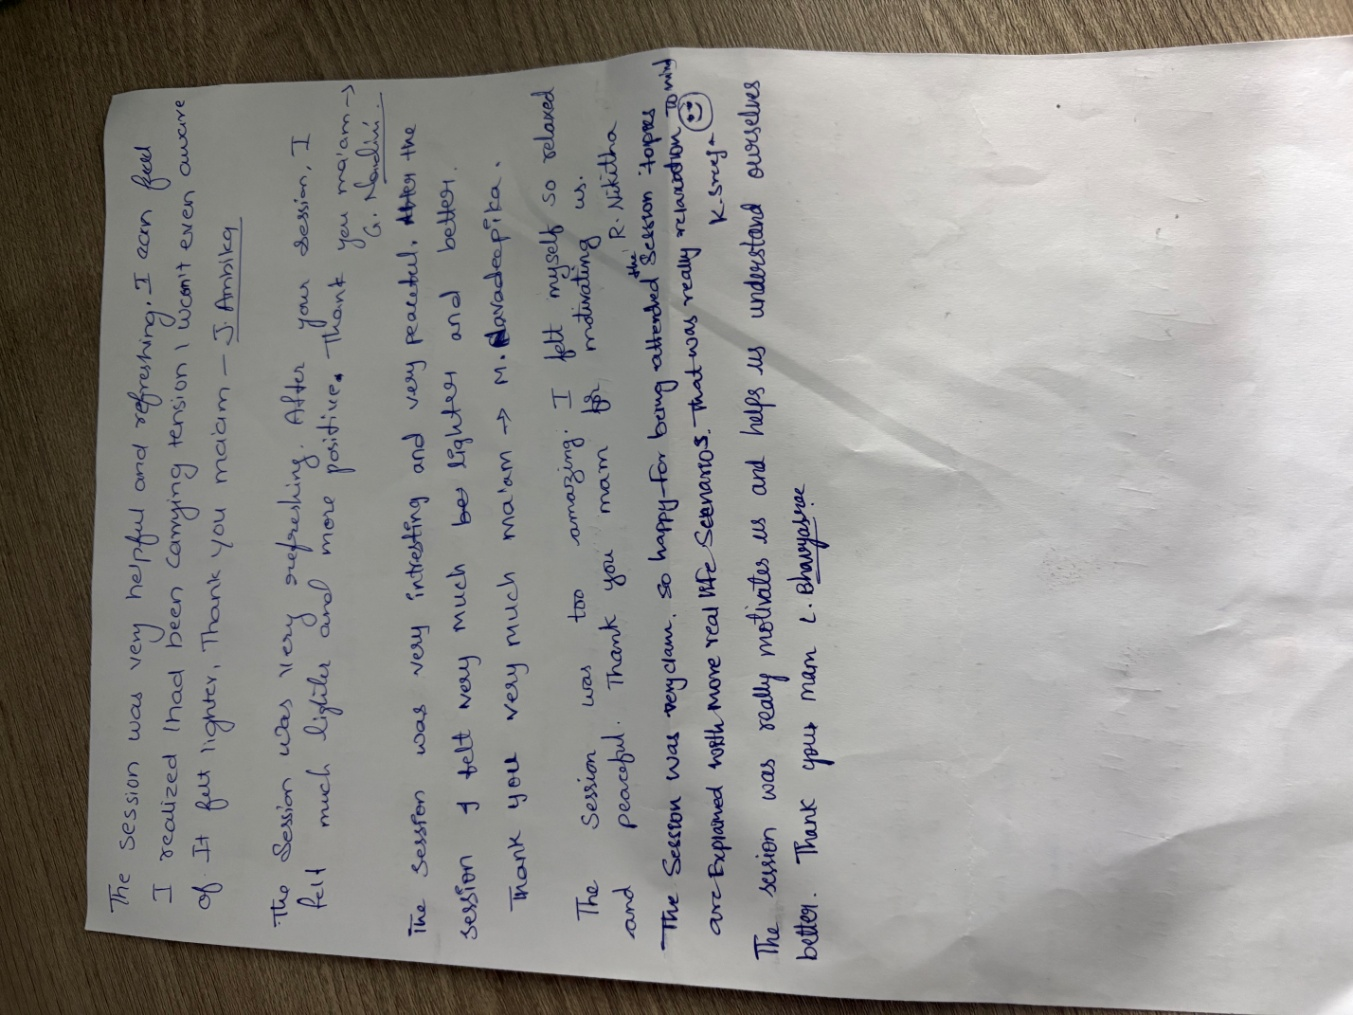 The session was very helpful and refreshing. I can feel
I realized I had been carrying tension I wasn't even aware
of. It felt lighter. Thank you ma'am - J. Ambika
The Session was very refreshing. After your session, I
felt much lighter and more positive. Thank you ma'am →
G. Nandini.
The session was very intresting and very peaceful. After the
session I felt very much be lighter and better.
Thank you very much ma'am → M. Navadeepika.
The Session was too amazing. I felt myself so relaxed
and peaceful. Thank you mam for motivating us.
R. Nikitha
The Session was very clam. so happy-For being attended the Session topics
are Explained with more real life Scenarios. That was really relaxation To mind
K. Sreeja
The session was really motivates us and helps us understand ourselves
better. Thank you mam L. Bhavyasree